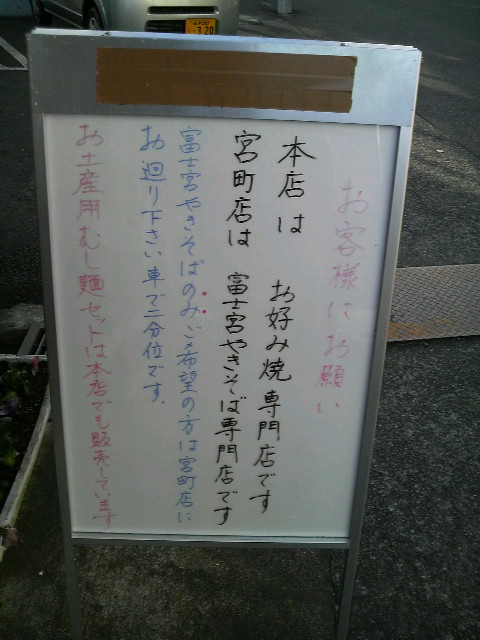 お客様にお願い
本店は　お好み焼専門店です
宮町店は　富士宮やきそば専門店です
富士宮やきそばのみご希望の方は宮町店に
お廻り下さい車で二分位です.
お土産用むし麺セットは本店でも販売しています
320